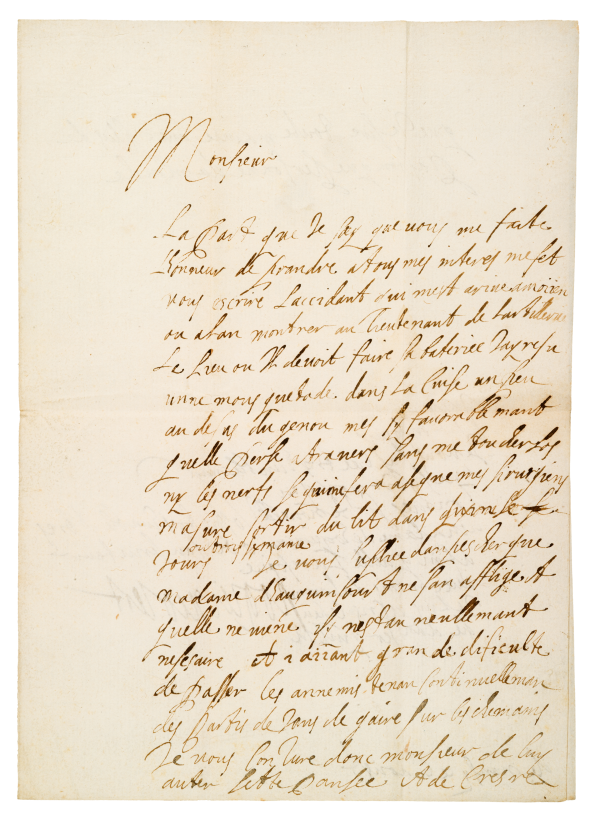 Monsieur
La part que Je say que vous me faite
lhonneur de prandre a tous mes interes me fet
vous escrire laccidant qui mest arive a moiien
ou alan montrer au lieutenant de lartillerie
le lieu ou Il devoit faire sa bateriee Jay resu
unne mousquetade dans la cuise un peu
au desus du genou mes sy favorablemant
quelle perse atravers sans me toucher los
ny les nerfs se qui me fera a se que mes sirurgiens
masure sortir du lit dans quinse
ou trois semanie
Jours Je vous supliee danpescher que
madame dEauquinsourt ne san afflige et
quelle ne viene Il nestan neullemant
nesesaire et i aiiant grande dificulte
de passer les annemis tenan continuellemant
des partis de Jans de gaire sur les chemains
Je vous conJure donc monsieur de luy
auter sette pansee et de cresre